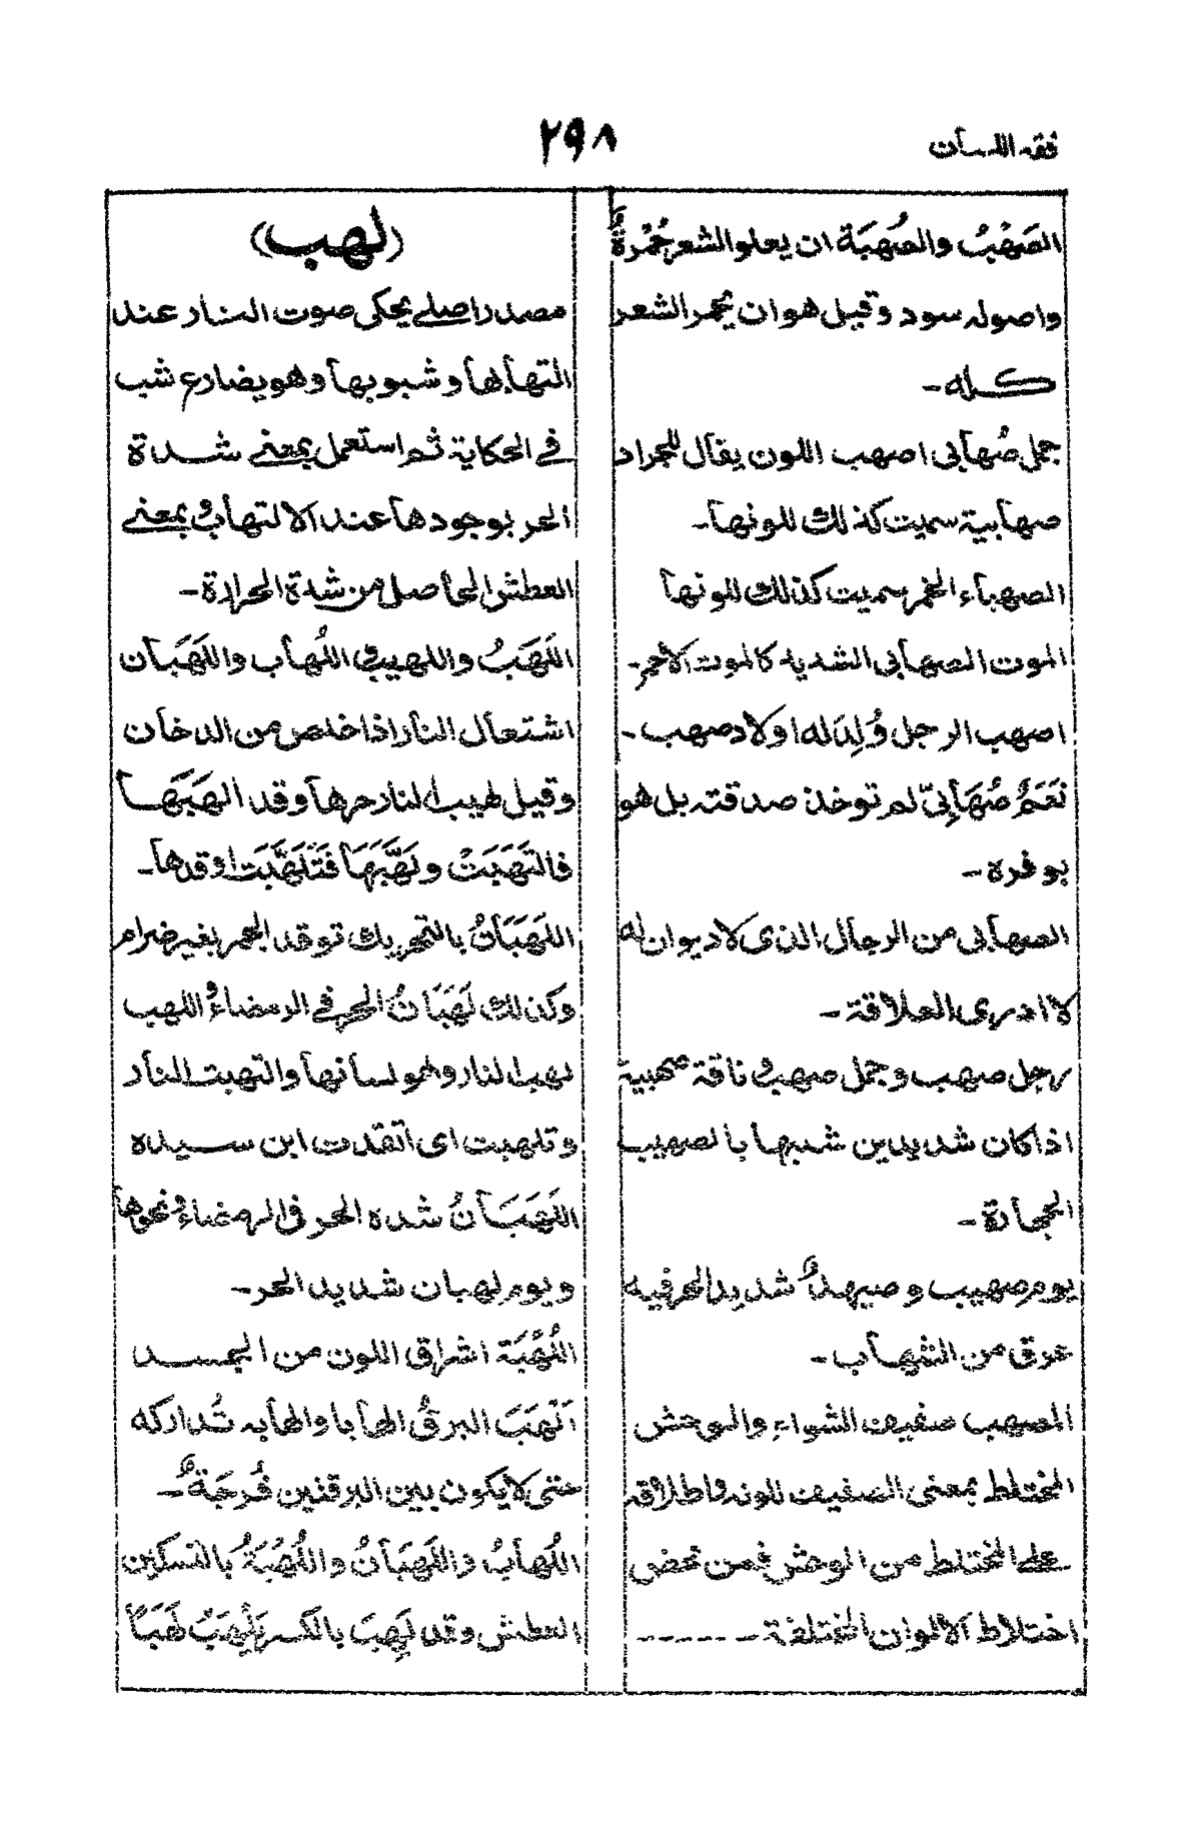 فقه اللسان
٢٩٨
الصَهْبُ والصُهبَة ان يعلو الشعر حُمْرةٌ
واصوله سود وقيل هو ان يحمر الشعر
كله -
جمل صُهابى اصهب اللون يقال للجراد
صهابية سميت كذلك للونها -
الصهباء الخمر سميت كذلك للونها
الموت الصهابى الشديد كالموت الاحمر -
اصهب الرجل وُلِدَ له اولاد صهب -
نَعَمٌ صُهَابِىّ لم توخذ صدقته بل هو
بوفره -
الصهابى من الرجال الذى لا ديوان له
لا ادرى العلاقة -
رجل صهب وجمل صهب و ناقة صهبية
اذا كان شديدين شبها بالصهيب
الحجارة -
يوم صهيب وصيهدٌ شديد الحر فيه
عرق من الشهاب -
المصهب صفيف الشواء والوحش
المختلط بمعنى الصفيف للونه واطلاقه
على المختلط من الوحش فمن محض
اختلاط الالوان المختلفة - ------
(لهب)
مصدر اصلى يحكى صوت النار عند
التهابها وشبوبها وهو يضارع شب
فى الحكاية ثم استعمل بمعنى شدة
الحر بوجودها عند الالتهاب و بمعنى
العطش الحاصل من شدة الحرارة -
اللَهَبُ واللهيب و اللُهاب واللَهَبان
اشتعال النار اذا خلص من الدخان
وقيل لهيب النار حرها وقد الهَبَها
فالتَهَبَتْ ولَهَّبَهَا فَتَلَهَّبَت اوقدها -
اللَهَبَانُ بالتحريك توقد الجمر بغير ضرام
وكذلك لَهَبَانُ الحر فى الرمضاء و اللهب
لهب النار وهو لسانها والتهبت النار
وتلهبت اى اتقدت ابن سيده
اللَهَبَانُ شده الحر فى الرمضاء و نحوها
ويوم لهبان شديد الحر -
اللُهْبَة اشراق اللون من الجسد
اَلْهَبَ البرقُ الهابا والهابه تُداركه
حتى لا يكون بين البرقتين فُرجَةٌ -
اللُهابُ واللَهَبَانُ واللُهْبَةُ بالتسكين
العطش وقد لَهِبَ بالكسر يَلْهَبُ لَهَبًا